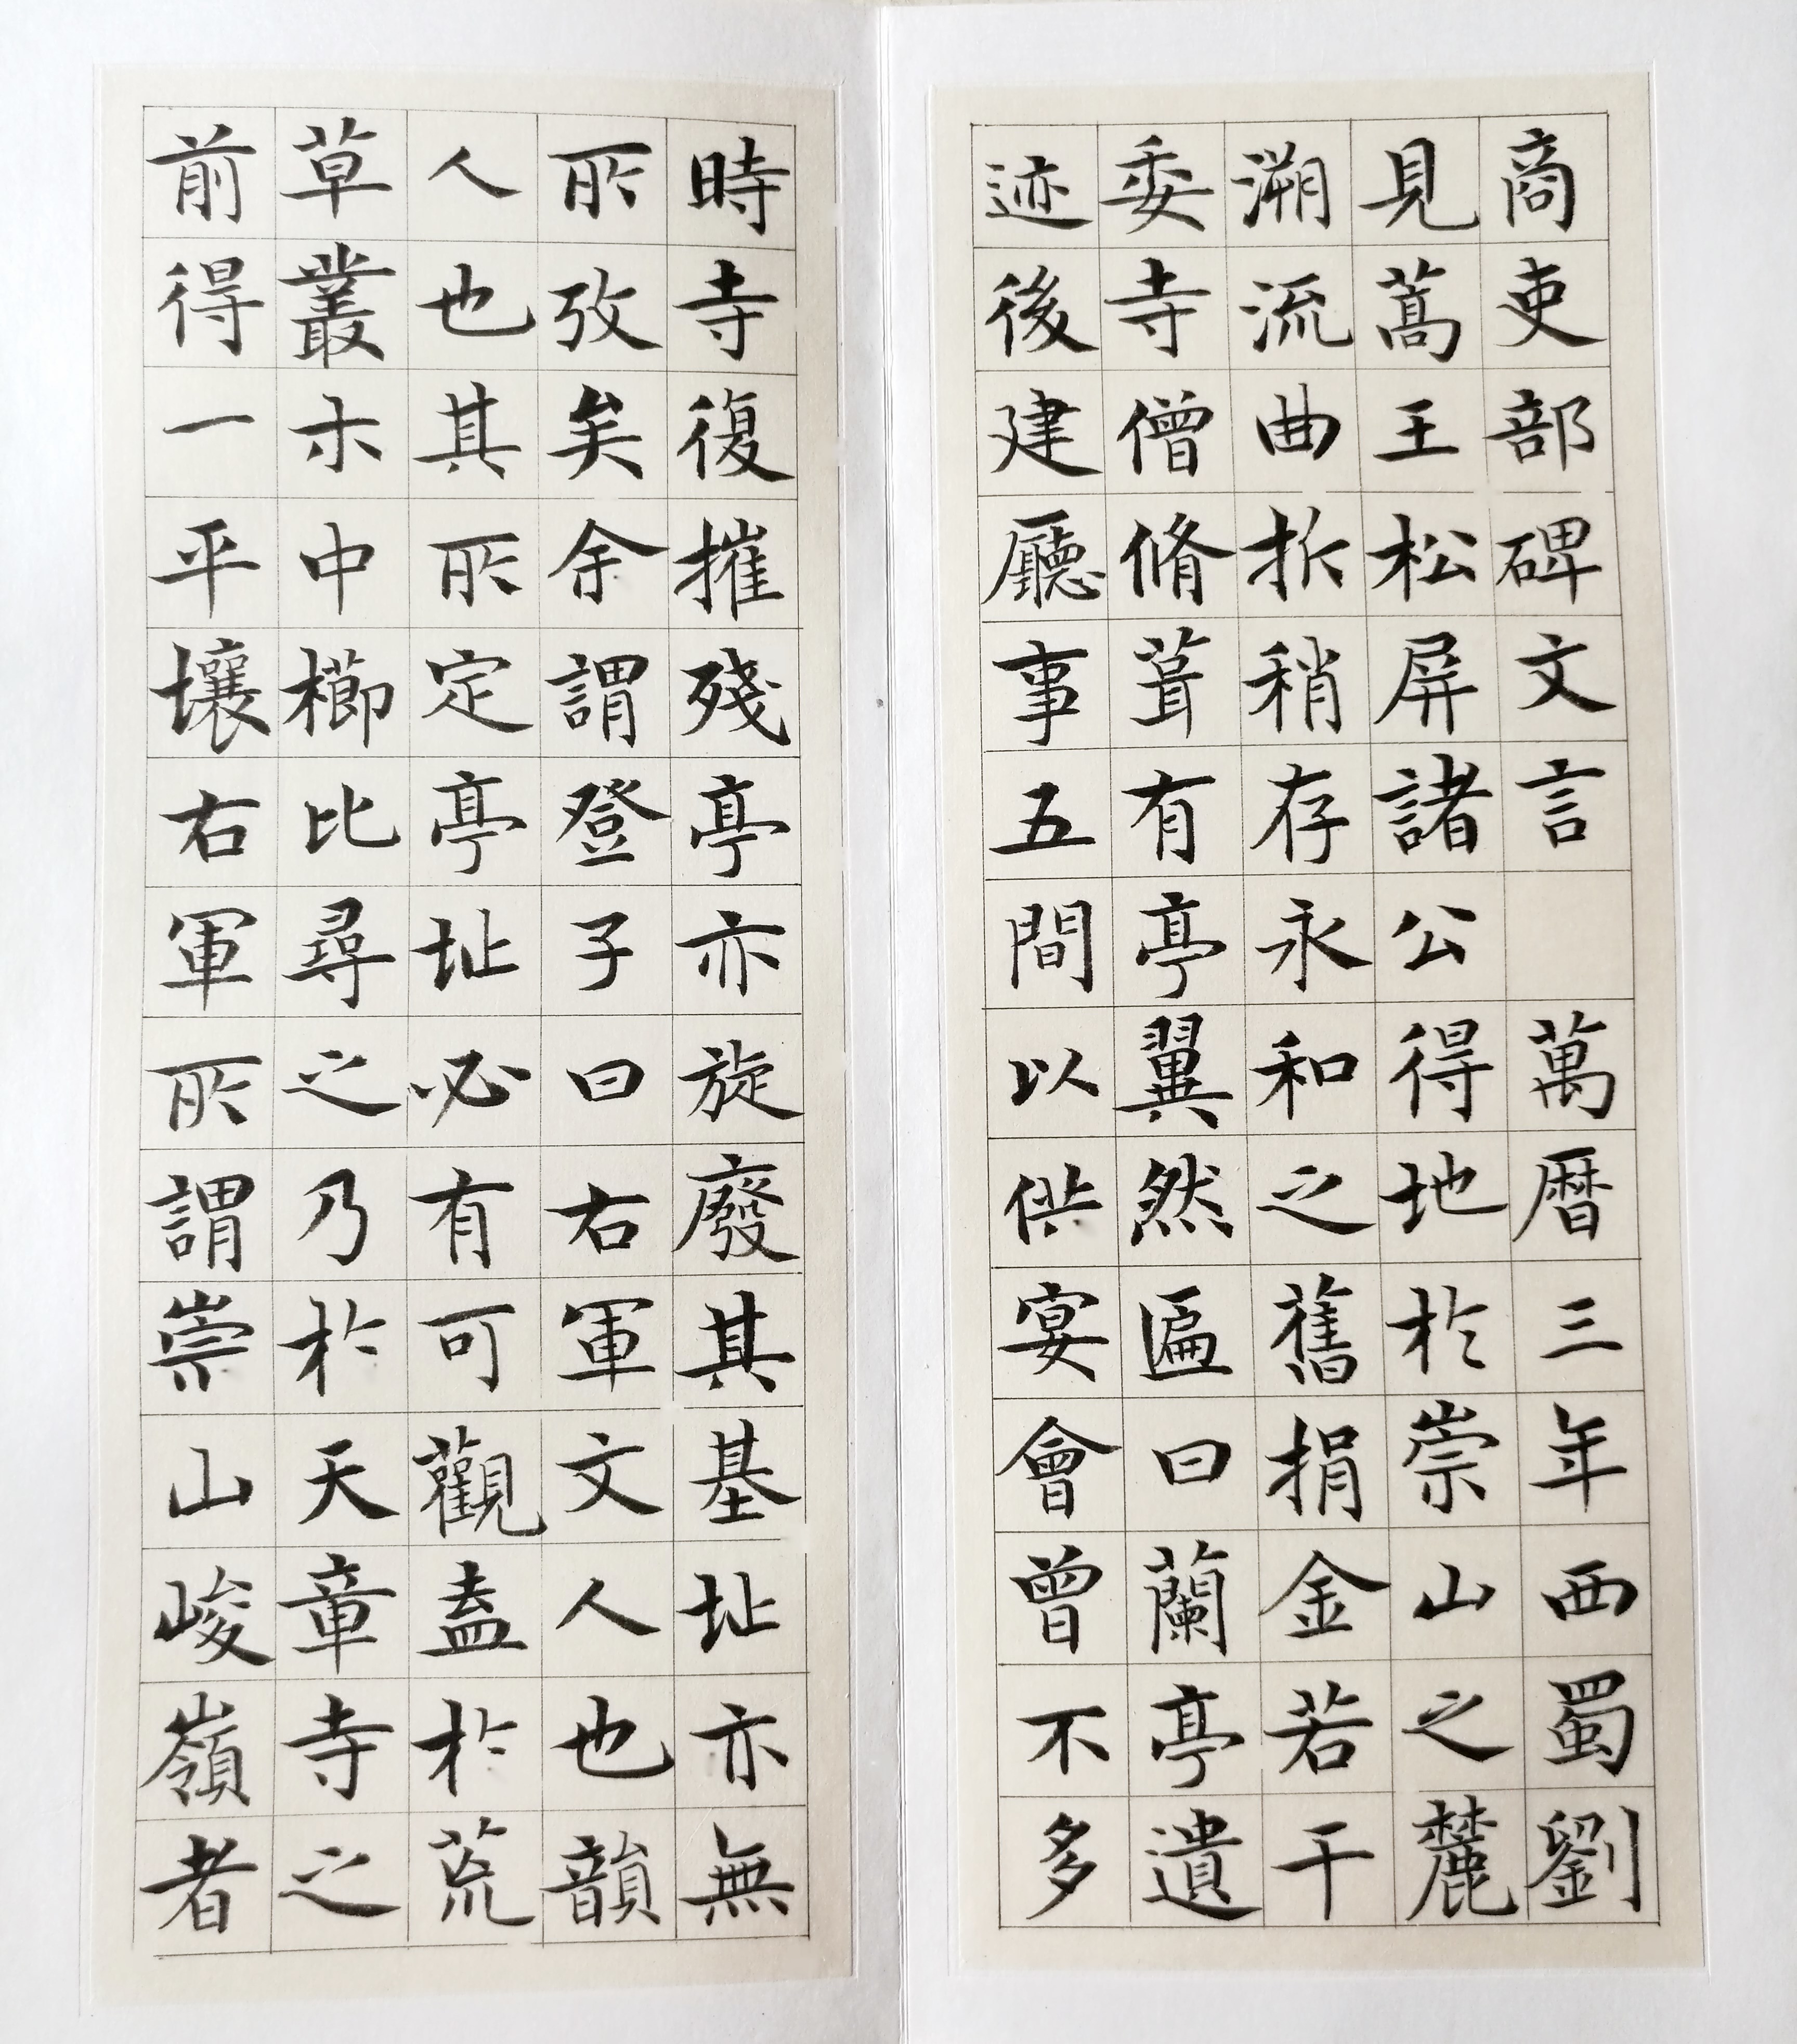 商吏部碑文言　萬曆三年西蜀劉
見蒿王松屏諸公得地於崇山之麓
溯流曲折稍存永和之舊捐金若干
委寺僧脩葺有亭翼然匾曰蘭亭遺
迹後建廳事五間以供宴會曾不多
時寺復摧殘亭亦旋廢其基址亦無
所攷矣余謂登子曰右軍文人也韻
人也其所定亭址必有可觀盍於荒
草叢木中櫛比尋之乃於天章寺之
前得一平壤右軍所謂崇山峻嶺者